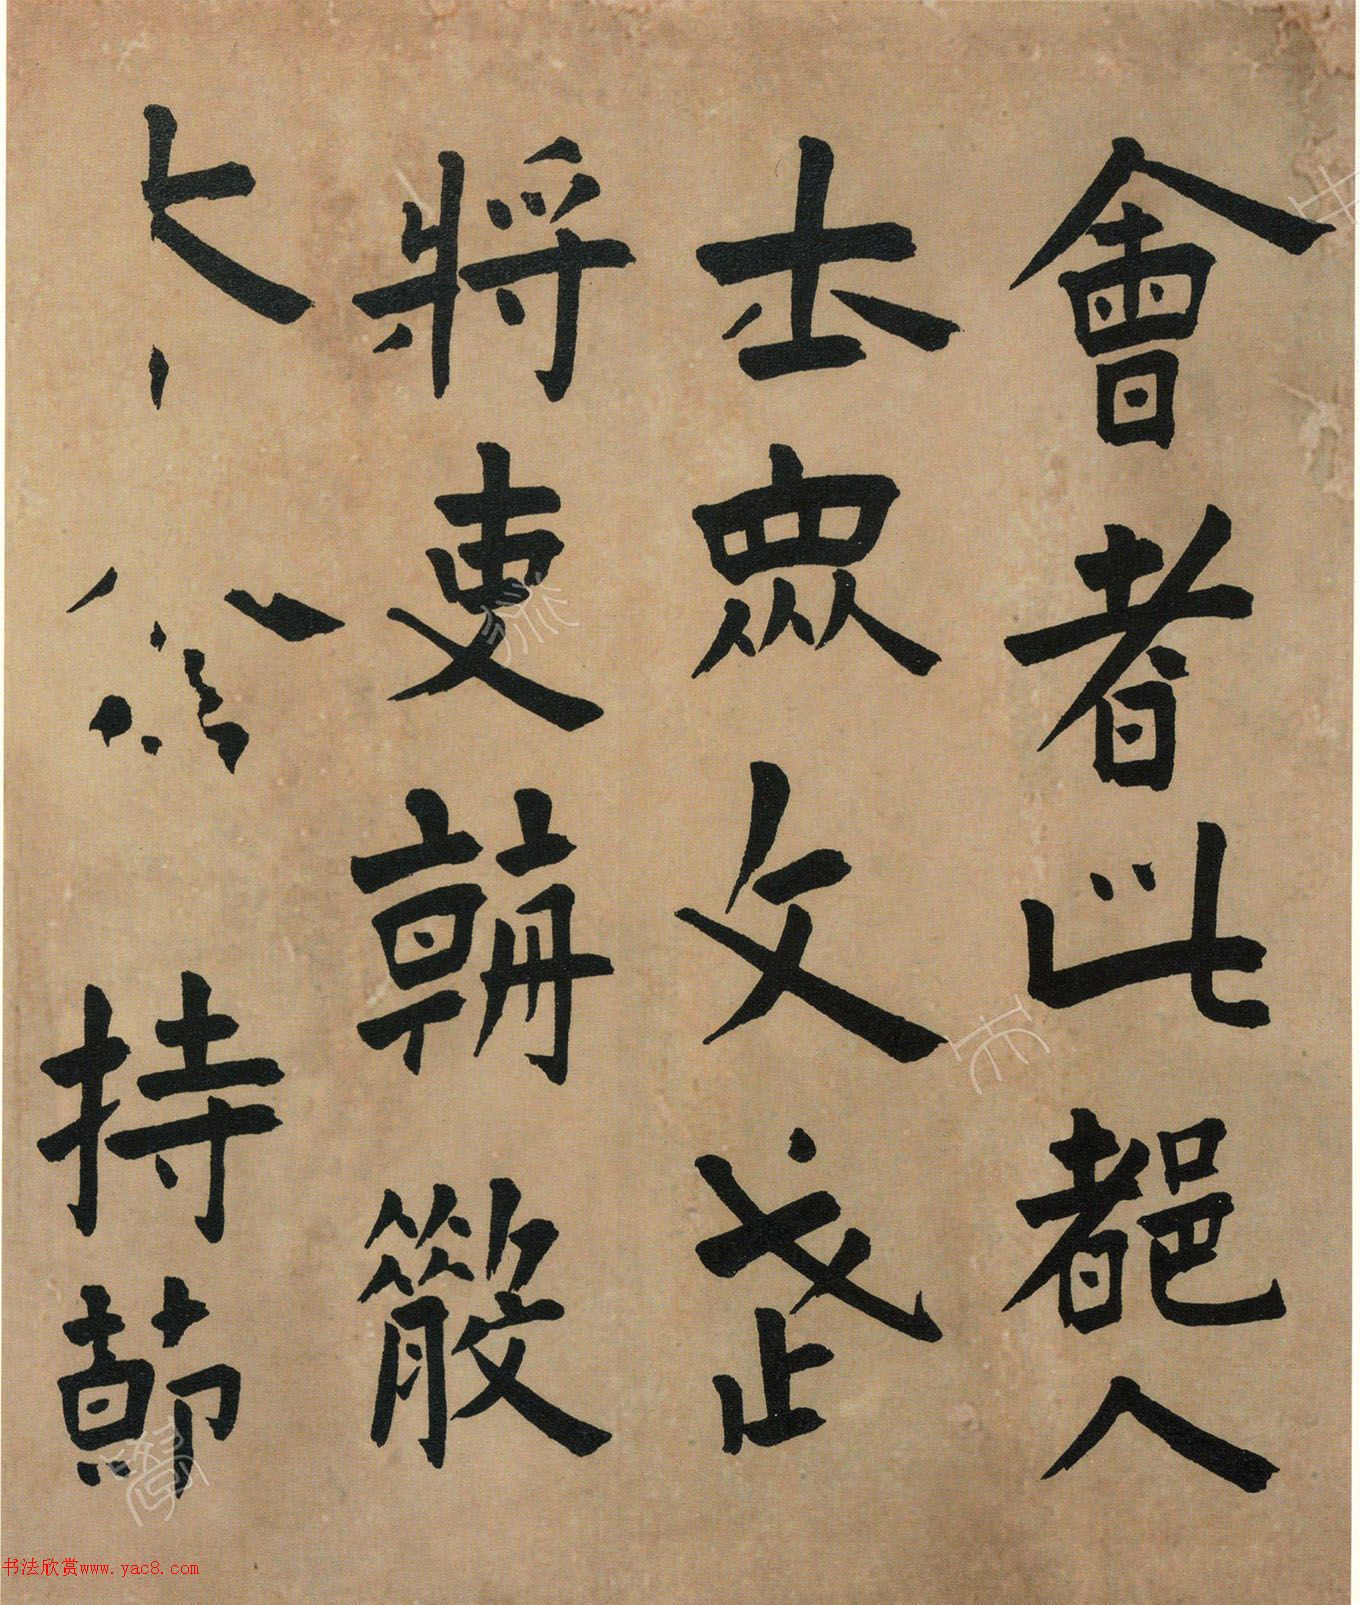 會者此都人
士眾文武
將吏朝散
持節
书法欣赏www.yac8.com